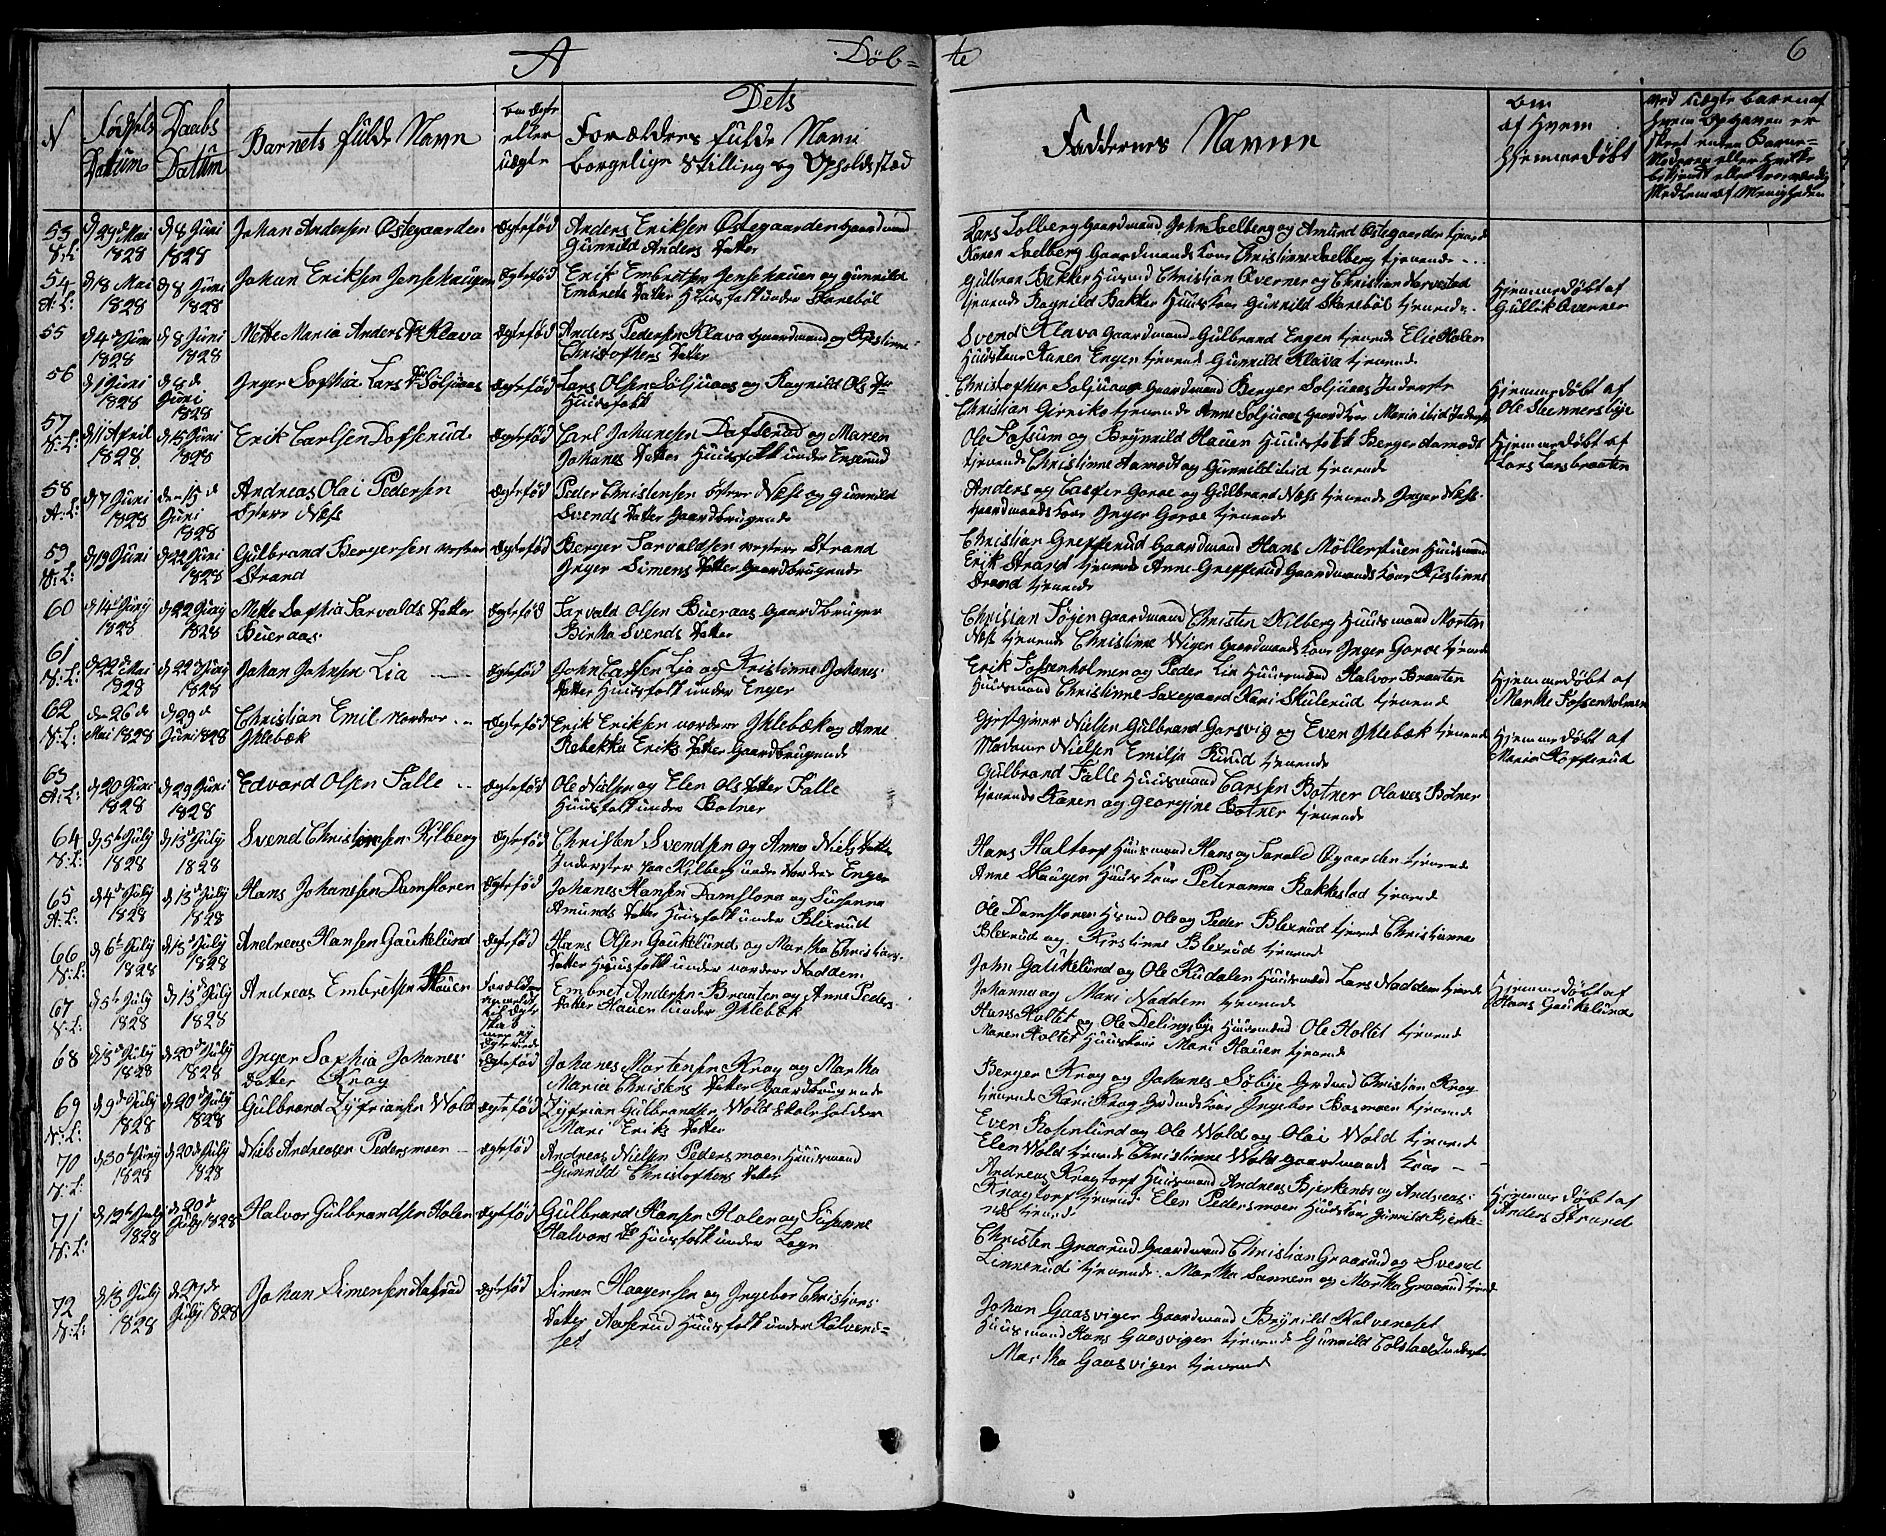 A Døb= te 6
N
Fødsels Datum
Daabs Datum
Barnets fulde Navn
Om Ægte eller uægte
Dets
Forældres fulde Navn
borgelige Stilling og Opholdsstæd
Faddernes Navne
Om af Hvem Hiemmedøbt
53
d 29de Mai 1828
d 8 Juni 1828
Johan Andersen Østegaarden
Ægtefød
Anders Eriksen Østegaarden Gaardmand
Gunnild Anders Datter
Lars Solberg Gaardmand John Solberg og Amund Østegaarden tjenende
Karen Solberg Gaardmands Kone Christinne Solberg tjenende
54
A: L:
d 18 Mai 1828
d 8 Juni 1828
Johan Eriksen Jensehaugen
Ægtefød
Erik Embretsen Jensehauen og Gunnild
Embrets Datter Huusfolk under Skarebøl
Gulbran Bakker Huusmd Christian Øverner og Christian
tjenende Ragnild Bakker Huuskone Gunnild Skarebøl tjenende
Hjemmedøbt af
Gullik Øverner
55
d 4de Juni 1828
d 8 Juni 1828
Mette Maria Anders Dr Klava
Ægtefød
Anders Pedersen Klava Gaardmand og Kjestinne
Christophers Datter
Svend Klava Gaardmand Gulbrand Engen tjenende Elie Holen
Huuskone Karen Engen tjenende Gunnild Klava tjenende
56
d 1 Juni 1828
d 8de Juni 1828
Inger Sophia Lars Dr Soljuaas
Ægtefød
Lars Olsen Soljuaas og Ragnild Ols Dr
Huusfolk
Christopher Soljuaas Gaardmand Berger Soljuaas Inderste
Christian Girniko tjenende Anne Soljuaas Gaardkone Maria ibid
Hjemmedøbt af
Ole Slennersbye
57
N: L:
d 11 April 1828
d 15 Juni 1828
Erik Carlsen Dofserud
Ægtefød
Carl Johanesen Dafserud og Maren
Johanes Datter Huusfolk under Engerud
Ole Fossum og Brynnild Hauen Huusfolk Berger Aamodt
tjenende Christinne Aamodt og Gunnild ibid tjenende
Hjemmedøbt af
Lars Larsbraaten
58
A: L:
d 7 Juni 1828
den 15de Juni 1828
Andreas Olai Pedersen
østere Næss
Ægtefød
Peder Christensen østere Næss og Gunnild
Svends Datter Gaardbrugende
Anders og Casper Goroe og Gulbrand Næss tjenende Inger Næss
Gaardmands Kone Inger Goroe tjenende
59
N: L:
d 19 Juni
d 22 Juni 1828
Gulbrand Bergersen vestere
Strand
Ægtefød
Berger Torvaldsen vestere Strand
Inger Simens Datter Gaardbrugende
Christian Grefserud Gaardmand Hans Möllerstuen Huusmand
Erik Strand tjenende Anne Grefserud Gaardmands Kone Kjestinne
Strand tjenende
60
d 14de Juny 1828
d 22 Juny 1828
Mette Sophia Torvalds Datter
Bueraas
Ægtefød
Torvald Olsen Bueraas Gaardbruger
Birtha Svends Datter
Christian Tojen Gaardmand Christen Kilberg Huusmand Morten
Næss tjenende Christinne Wiger Gaardmands Kone Inger Goroe tjenende
61
N: L:
d 22de Mai 1828
d 22de Juni 1828
Johan Johnsen Lia
Ægtefød
John Larssen Lia og Kristinne Johanes
Datter Huusfolk under Enger
Erik Fossenholmen og Peder Lia Huusmænd Halvor Braaten
Huusmand Christinne Saxegaard Kari Skulerud tjenende
Hjemmedøbt af
Marthe Fossenholmen
62
N: L:
den 26de Mai 1828
d 29de Juni 1828
Christian Emil nordere
Ihlebæk
Ægtefød
Erik Eriksen nordere Ihlebæk og Anne
Rebekka Eriks Datter Gaardbrugende
Gjestgiver Nielsen Gulbrand Gorsvig og Even Ihlebæk tjenende
Madame Nielsen Emilja Ruud tjenende
Hjemmedøbt af
Maria Kopperud
63
A: L:
d 20 Juni 1828
d 29 Juni 1828
Edvard Olsen Falle
Ægtefød
Ole Nielsen og Elen Ols Datter Falle
Huusfolk under Botner
Gulbrand Falle Huusmand Carsten Botner Olaves Botner
tjenende Karen og Georgine Botner tjenende
64
N: L:
d 5te July 1828
d 13de July 1828
Svend Christensen Kjlberg
Ægtefød
Christen Svendsen og Anne Niels Datter
Inderster paa Kilberg under Nordere Enger
Hans Haltorp Huusmand Hans og Torald Øgaarden tjenende
Anne Skauger Huuskone Peteranna Rakkestad tjenende
65
A: L:
d 4de July 1828
d 13de July 1828
Hans Johanesen Damsloren
Ægtefød
Johanes Hansen Damslora og Susanna
Amunds Datter Huusfolk under Blixrud
Ole Damsloren Husmd Ole og Peder Blexrud tjenende Christianne
Blexrud og Kirstinne Blexrud tjenende
66
N: L:
d 6te July 1828
d 13de July 1828
Andreas Hansen Gaukelund
Ægtefød
Hans Olsen Gaukelund og Martha Christians
Datter Huusfolk under nordere Naddem
John Gaukelund og Ole Rudolen Huusmænd Lars Naddem tjenende
Johanna og Mari Naddem tjenende
Hjemmedøbt af
Hans Gaukelund
67
N: L:
d 5te July 1828
d 13de July 1828
Andreas Embretsen Hauen
Embret Andersen Braaten og Anne Peders
Datter Hauen under Ihlebæk
Hans Holtet og Ole Delingsbye Huusmænd Ole Holtet tjenende
Maren Holtet Huuskone Mari Hauen tjenende
68
d 13de July 1828
d 20de July 1828
Inger Sophia Johanes
Datter Krog
Ægtefød
Johanes Mortensen Krog og Martha
Maria Christens Datter Gaardbrugende
Berger Krog og Johanes Søbye Grdmd Christian Krog
tjenende Kari Krog Grdmds Kone Ingebor Basmoen tjenende
69
N: L:
d 9de July 1828
d 20de July 1828
Gulbrand Zyfriansen Wold
Ægtefød
Zyfrian Gulbrandsen Wold Skoleholder
Mari Eriks Datter
Even Rosenlund og Ole Wold og Olai Wold tjenende
Elen Wold tjenende Christinne Wold Gaardmands Kone
70
N: L:
d 30te Juny 1828
d 20de July 1828
Niels Andreasen Pedersmoen
Ægtefød
Andreas Nielsen Pedersmoen Huusmand
Gunnild Christophers Datter
Andreas Krogtorp Huusmand Andreas Bjerkenæs og Andreas
Krogtorp tjenende Elen Pedersmoen Huuskone Gunnild Bjerke-
næs tjenende
Hjemmedøbt af
Anders Strand
71
N: L:
d 12te July 1828
d 20de July 1828
Halvor Gulbrandsen Holen
Ægtefød
Gulbrand Hansen Holen og Susanne
Halvors Dr Huusfolk under Loge
Christen Graarud Gaardmand Christian Graarud og Svend
Linnerud tjenende. Martha Sannem og Martha Graarud tjende
72
N: L:
d 13 July 1828
d 27de July 1828
Johan Simensen Aaserud
Ægtefød
Simen Haagensen og Ingebor Christians
Datter Aaserud Huusfolk under Kalvene=
set
Johan Gaasviger Gaardmand Brynild Kalveneset
Huusmand Hans Gaasviger tjenende Gunnild Colstad Inderste
Martha Gaasviger tjenende